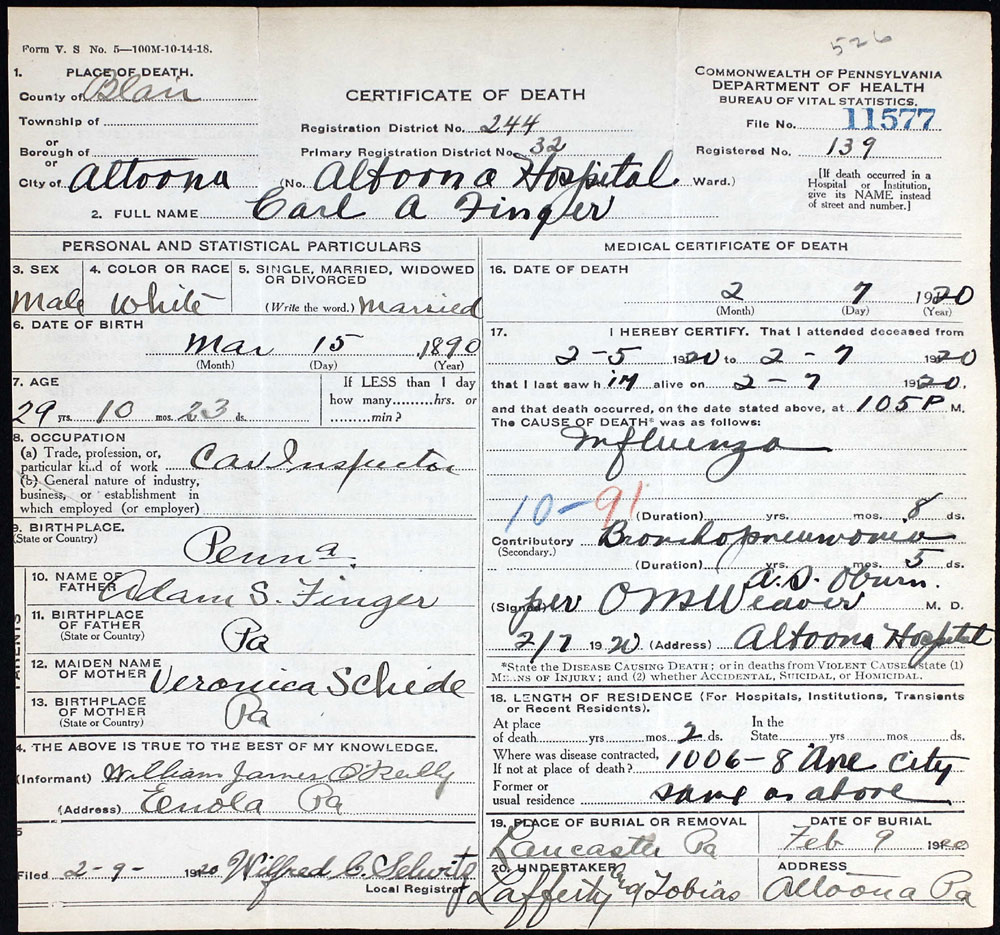 526
Form V. S No. 5—100M-10-14-18.
1. PLACE OF DEATH.
County of Blair
Township of
or
Borough of
or
City of Altoona
CERTIFICATE OF DEATH
Registration District No. 244
Primary Registration District No. 32
(No. Altoona Hospital Ward.)
COMMONWEALTH OF PENNSYLVANIA
DEPARTMENT OF HEALTH
BUREAU OF VITAL STATISTICS.
File No. 11577
Registered No. 139
[If death occurred in a
Hospital or Institution,
give its NAME instead
of street and number.]
2. FULL NAME Carl A Finger
PERSONAL AND STATISTICAL PARTICULARS
3. SEX
Male
4. COLOR OR RACE
White
5. SINGLE, MARRIED, WIDOWED
OR DIVORCED
(Write the word.) Married
6. DATE OF BIRTH
Mar 15 1890
(Month) (Day) (Year)
7. AGE
29 yrs. 10 mos. 23 ds.
If LESS than 1 day
how many........hrs. or
..........min?
8. OCCUPATION
(a) Trade, profession, or,
particular kind of work Car Inspector
(b) General nature of industry,
business, or establishment in
which employed (or employer)
9. BIRTHPLACE.
(State or Country)
Penna.
PARENTS
10. NAME OF
FATHER Adam S. Finger
11. BIRTHPLACE
OF FATHER
(State or Country)
Pa
12. MAIDEN NAME
OF MOTHER Veronica Schede
13. BIRTHPLACE
OF MOTHER
(State or Country)
Pa
4. THE ABOVE IS TRUE TO THE BEST OF MY KNOWLEDGE.
(Informant) William James O'Reilly
(Address) Enola Pa
5
Filed 2-9- 1920 Wilfred C. Selwitz
Local Registrar
MEDICAL CERTIFICATE OF DEATH
16. DATE OF DEATH
2 7 1920
(Month) (Day) (Year)
17. I HEREBY CERTIFY. That I attended deceased from
2-5 1920 to 2-7 1920
that I last saw him alive on 2-7 1920.
and that death occurred, on the date stated above, at 105P M.
The CAUSE OF DEATH* was as follows:
Influenza
10-91
(Duration) yrs. mos. 8 ds.
Contributory Bronchopneumonia
(Secondary.)
(Duration) yrs. mos. 5 ds.
A. S. Oburn.
(Signed) per O M Weaver M. D.
2/7 1920 (Address) Altoona Hospital
*State the DISEASE CAUSING DEATH; or in deaths from VIOLENT CAUSES state (1)
MEANS OF INJURY; and (2) whether ACCIDENTAL, SUICIDAL, OR HOMICIDAL.
18. LENGTH OF RESIDENCE (For Hospitals, Institutions, Transients
or Recent Residents).
At place
of death yrs mos 2 ds.
In the
State yrs. mos. ds.
Where was disease contracted,
If not at place of death? 1006-8 Ave city
Former or
usual residence same as above
19. PLACE OF BURIAL OR REMOVAL
Lancaster Pa
DATE OF BURIAL
Feb 9 1920
20. UNDERTAKER
Lafferty and Tobias
ADDRESS
Altoona Pa